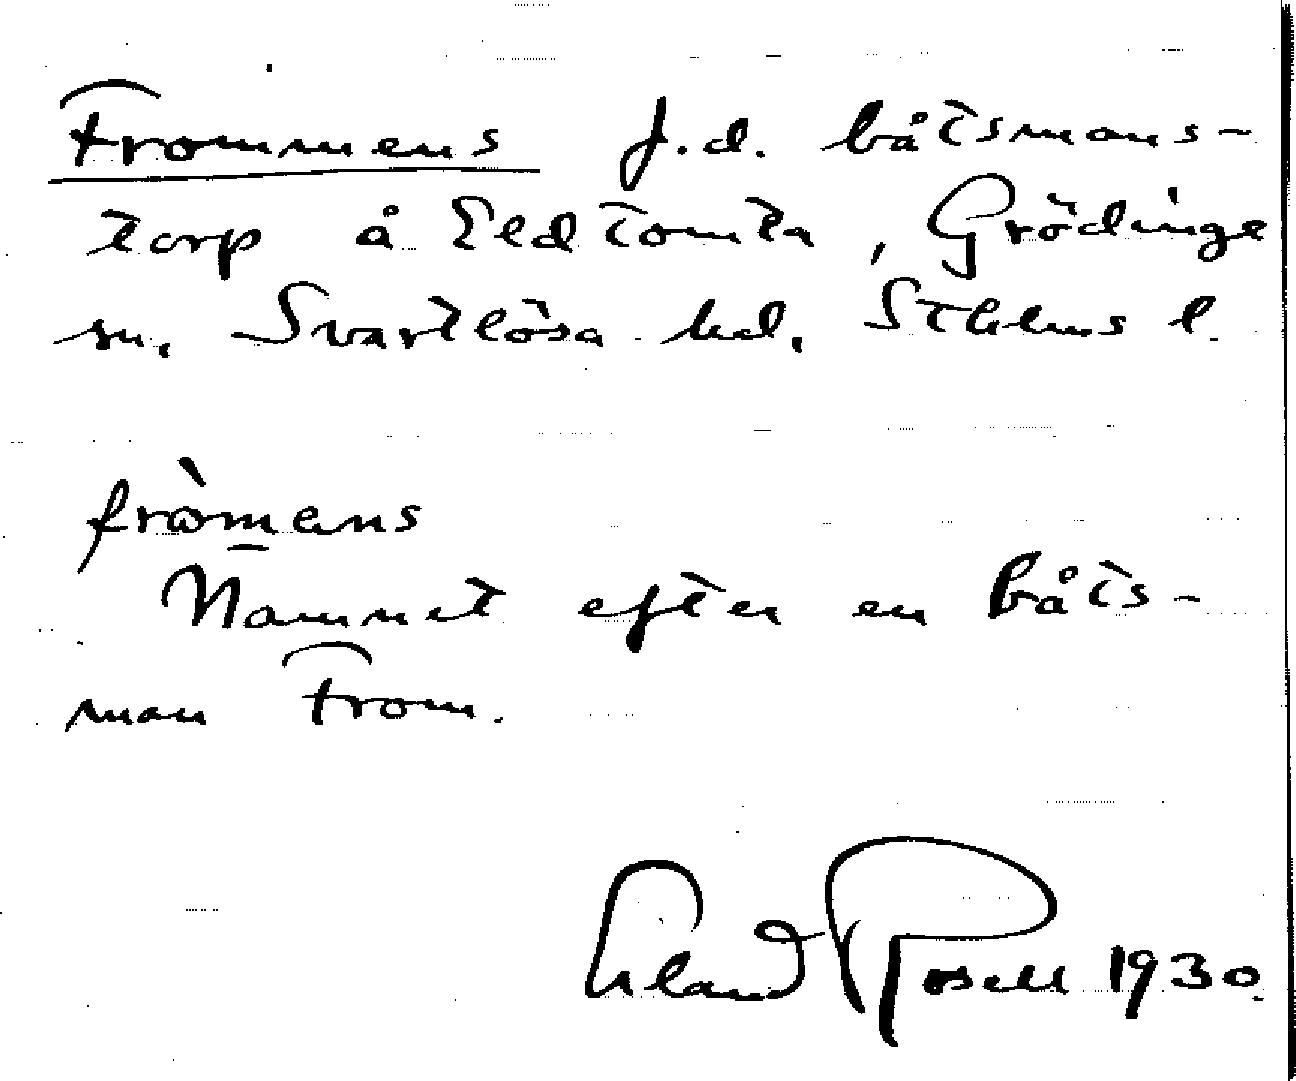 Frommens f.d. båtsmans-
torp å Eldtomta, Grödinge
sn, Svartlösa hd, Sthlms l.
fròmens
Namnet efter en båts-
man From.
Erland Rosell 1930